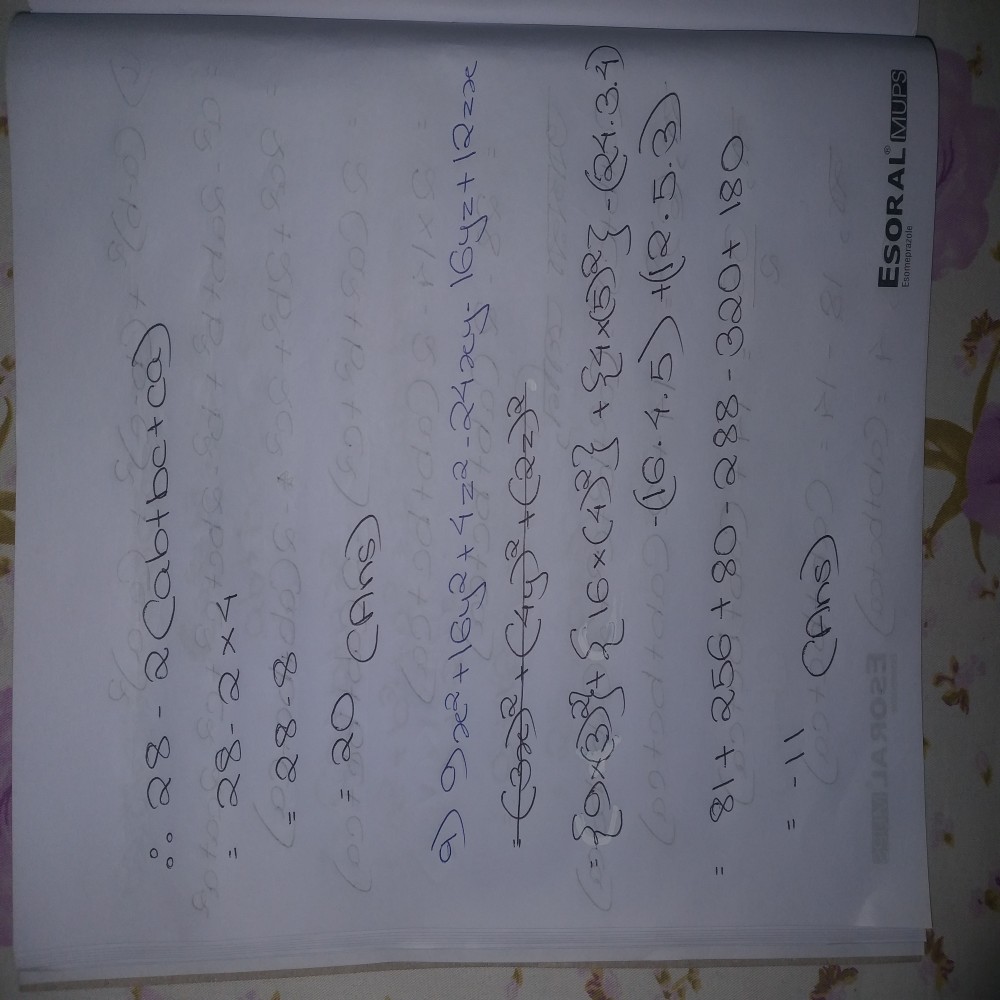 ∴ 28 - 2(ab+bc+ca)
= 28-2×4
= 28-8
= 20 (Ans)
9) 9x²+16y²+4z²-24xy-16yz+12zx
= (3x)²+(4y)²+(2z)²
= {9×(3)²}+{16×(4)²}+{4×(5)²}-(24.3.4)
-(16.4.5)+(12.5.3)
= 81+256+80-288-320+180
= -11 (Ans)
ESORAL® MUPS
Esomeprazole